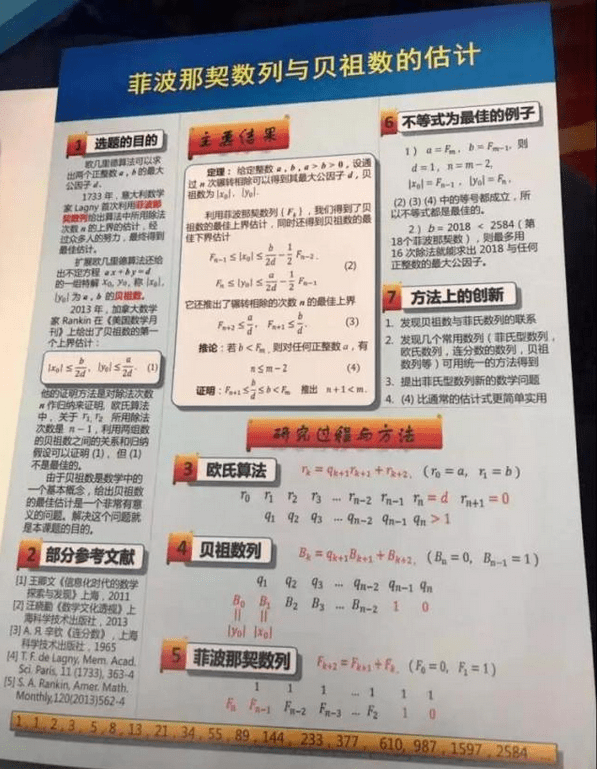 菲波那契数列与贝祖数的估计
1 选题的目的
欧几里德算法可以求
出两个正整数 a, b 的最大
公因子 d.
1733 年，意大利数学
家 Lagny 首次利用菲波那
契数列给出算法中所用除法
次数 n 的上界的估计，经
过众多人的努力，最终得到
最佳估计。
扩展欧几里德算法还给
出不定方程 ax + by = d
的一组特解 x₀, y₀, 称 |x₀|,
|y₀| 为 a, b 的贝祖数。
2013 年，加拿大数学
家 Rankin 在《美国数学月
刊》上给出了贝祖数的第一
个上界估计：
|x₀| ≤ b/2d, |y₀| ≤ a/2d. (1)
他的证明方法是对除法次数
n 作归纳来证明，欧氏算法
中，关于 r₁, r₂ 所用除法
次数是 n − 1，利用两组数
的贝祖数之间的关系和归纳
假设可以证明 (1)、但 (1)
不是最佳的。
由于贝祖数是数学中的
一个基本概念，给出贝祖数
的最佳估计是一个非常有意
义的问题。解决这个问题就
是本课题的目的。
2 部分参考文献
[1] 王卿文《信息化时代的数学
探索与发现》上海，2011
[2] 汪晓勤《数学文化透视》上
海科学技术出版社，2013
[3] А. Я. 辛钦《连分数》，上海
科学技术出版社，1965
[4] T. F. de Lagny, Mem. Acad.
Sci. Paris, 11 (1733), 363-4
[5] S. A. Rankin, Amer. Math.
Monthly,120(2013)562-4
主要结果
定理：给定整数 a, b, a > b > 0，设通
过 n 次辗转相除可以得到其最大公因子 d，贝
祖数为 |x₀|, |y₀|.
利用菲波那契数列 {Fₖ}，我们得到了贝
祖数的最佳上界估计，同时还得到贝祖数的最
佳下界估计
Fₙ₋₁ ≤ |x₀| ≤ b/2d − 1/2 Fₙ₋₂.
(2)
Fₙ ≤ |y₀| ≤ a/2d − 1/2 Fₙ₋₁
它还推出了辗转相除的次数 n 的最佳上界
Fₙ₊₂ ≤ a/d, Fₙ₊₁ ≤ b/d. (3)
推论：若 b < Fₘ, 则对任何正整数 a，有
n ≤ m − 2 (4)
证明：Fₙ₊₁ ≤ b/d ≤ b < Fₘ 推出 n + 1 < m.
6 不等式为最佳的例子
1）a = Fₘ, b = Fₘ₋₁, 则
d = 1, n = m − 2,
|x₀| = Fₙ₋₁, |y₀| = Fₙ,
(2) (3) (4) 中的等号都成立，所
以不等式都是最佳的。
2）b = 2018 < 2584（第
18个菲波那契数），则最多用
16 次除法就能求出 2018 与任何
正整数的最大公因子。
7 方法上的创新
1. 发现贝祖数与菲氏数列的联系
2. 发现几个常用数列（菲氏型数列，
欧氏数列，连分数的数列，贝祖
数列等）可用统一的方法得到
3. 提出菲氏型数列新的数学问题
4. (4) 比通常的估计式更简单实用
研究过程与方法
3 欧氏算法 rₖ = qₖ₊₁rₖ₊₁ + rₖ₊₂,（r₀ = a, r₁ = b）
r₀ r₁ r₂ r₃ ... rₙ₋₂ rₙ₋₁ rₙ = d rₙ₊₁ = 0
q₁ q₂ q₃ ... qₙ₋₂ qₙ₋₁ qₙ > 1
4 贝祖数列 Bₖ = qₖ₊₁Bₖ₊₁ + Bₖ₊₂,（Bₙ = 0, Bₙ₋₁ = 1）
q₁ q₂ q₃ ... qₙ₋₂ qₙ₋₁ qₙ
B₀ B₁ B₂ B₃ ... Bₙ₋₂ 1 0
|| ||
|y₀| |x₀|
5 菲波那契数列 Fₖ₊₂ = Fₖ₊₁ + Fₖ,（F₀ = 0, F₁ = 1）
1 1 1 ... 1 1 1
Fₙ Fₙ₋₁ Fₙ₋₂ Fₙ₋₃ ... F₂ 1 0
1, 1, 2, 3, 5, 8, 13, 21, 34, 55, 89, 144, 233, 377, 610, 987, 1597, 2584 ...